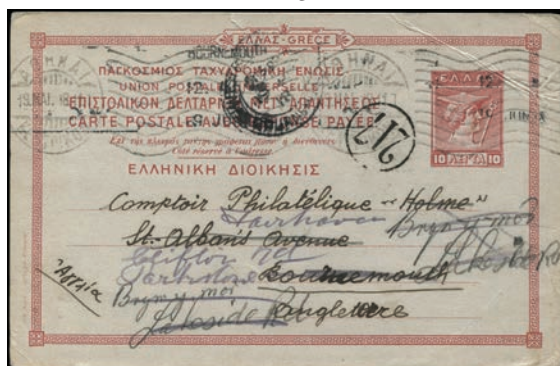 ΕΛΛΑΣ-GRÈCE
ΠΑΓΚΟΣΜΙΟΣ ΤΑΧΥΔΡΟΜΙΚΗ ΕΝΩΣΙΣ
UNION POSTALE UNIVERSELLE
ΕΠΙΣΤΟΛΙΚΟΝ ΔΕΛΤΑΡΙΟΝ ΜΕΤ' ΑΠΑΝΤΗΣΕΩΣ
CARTE POSTALE AVEC RÉPONSE PAYÉE
Côté réservé à l'adresse
ΕΛΛΗΝΙΚΗ ΔΙΟΙΚΗΣΙΣ
ΕΛΛΑΣ
10 ΛΕΠΤΑ 10
BOURNEMOUTH
ΑΘΗΝΑΙ
217
Comptoir Philatélique "Holme"
Fairhaven
St. Alban's Avenue
Bryn-y-moi
Clifton Rd
Parkstone
Bournemouth
Αγγλία
Bryn-y-moi
Lakeside Rd
Angleterre